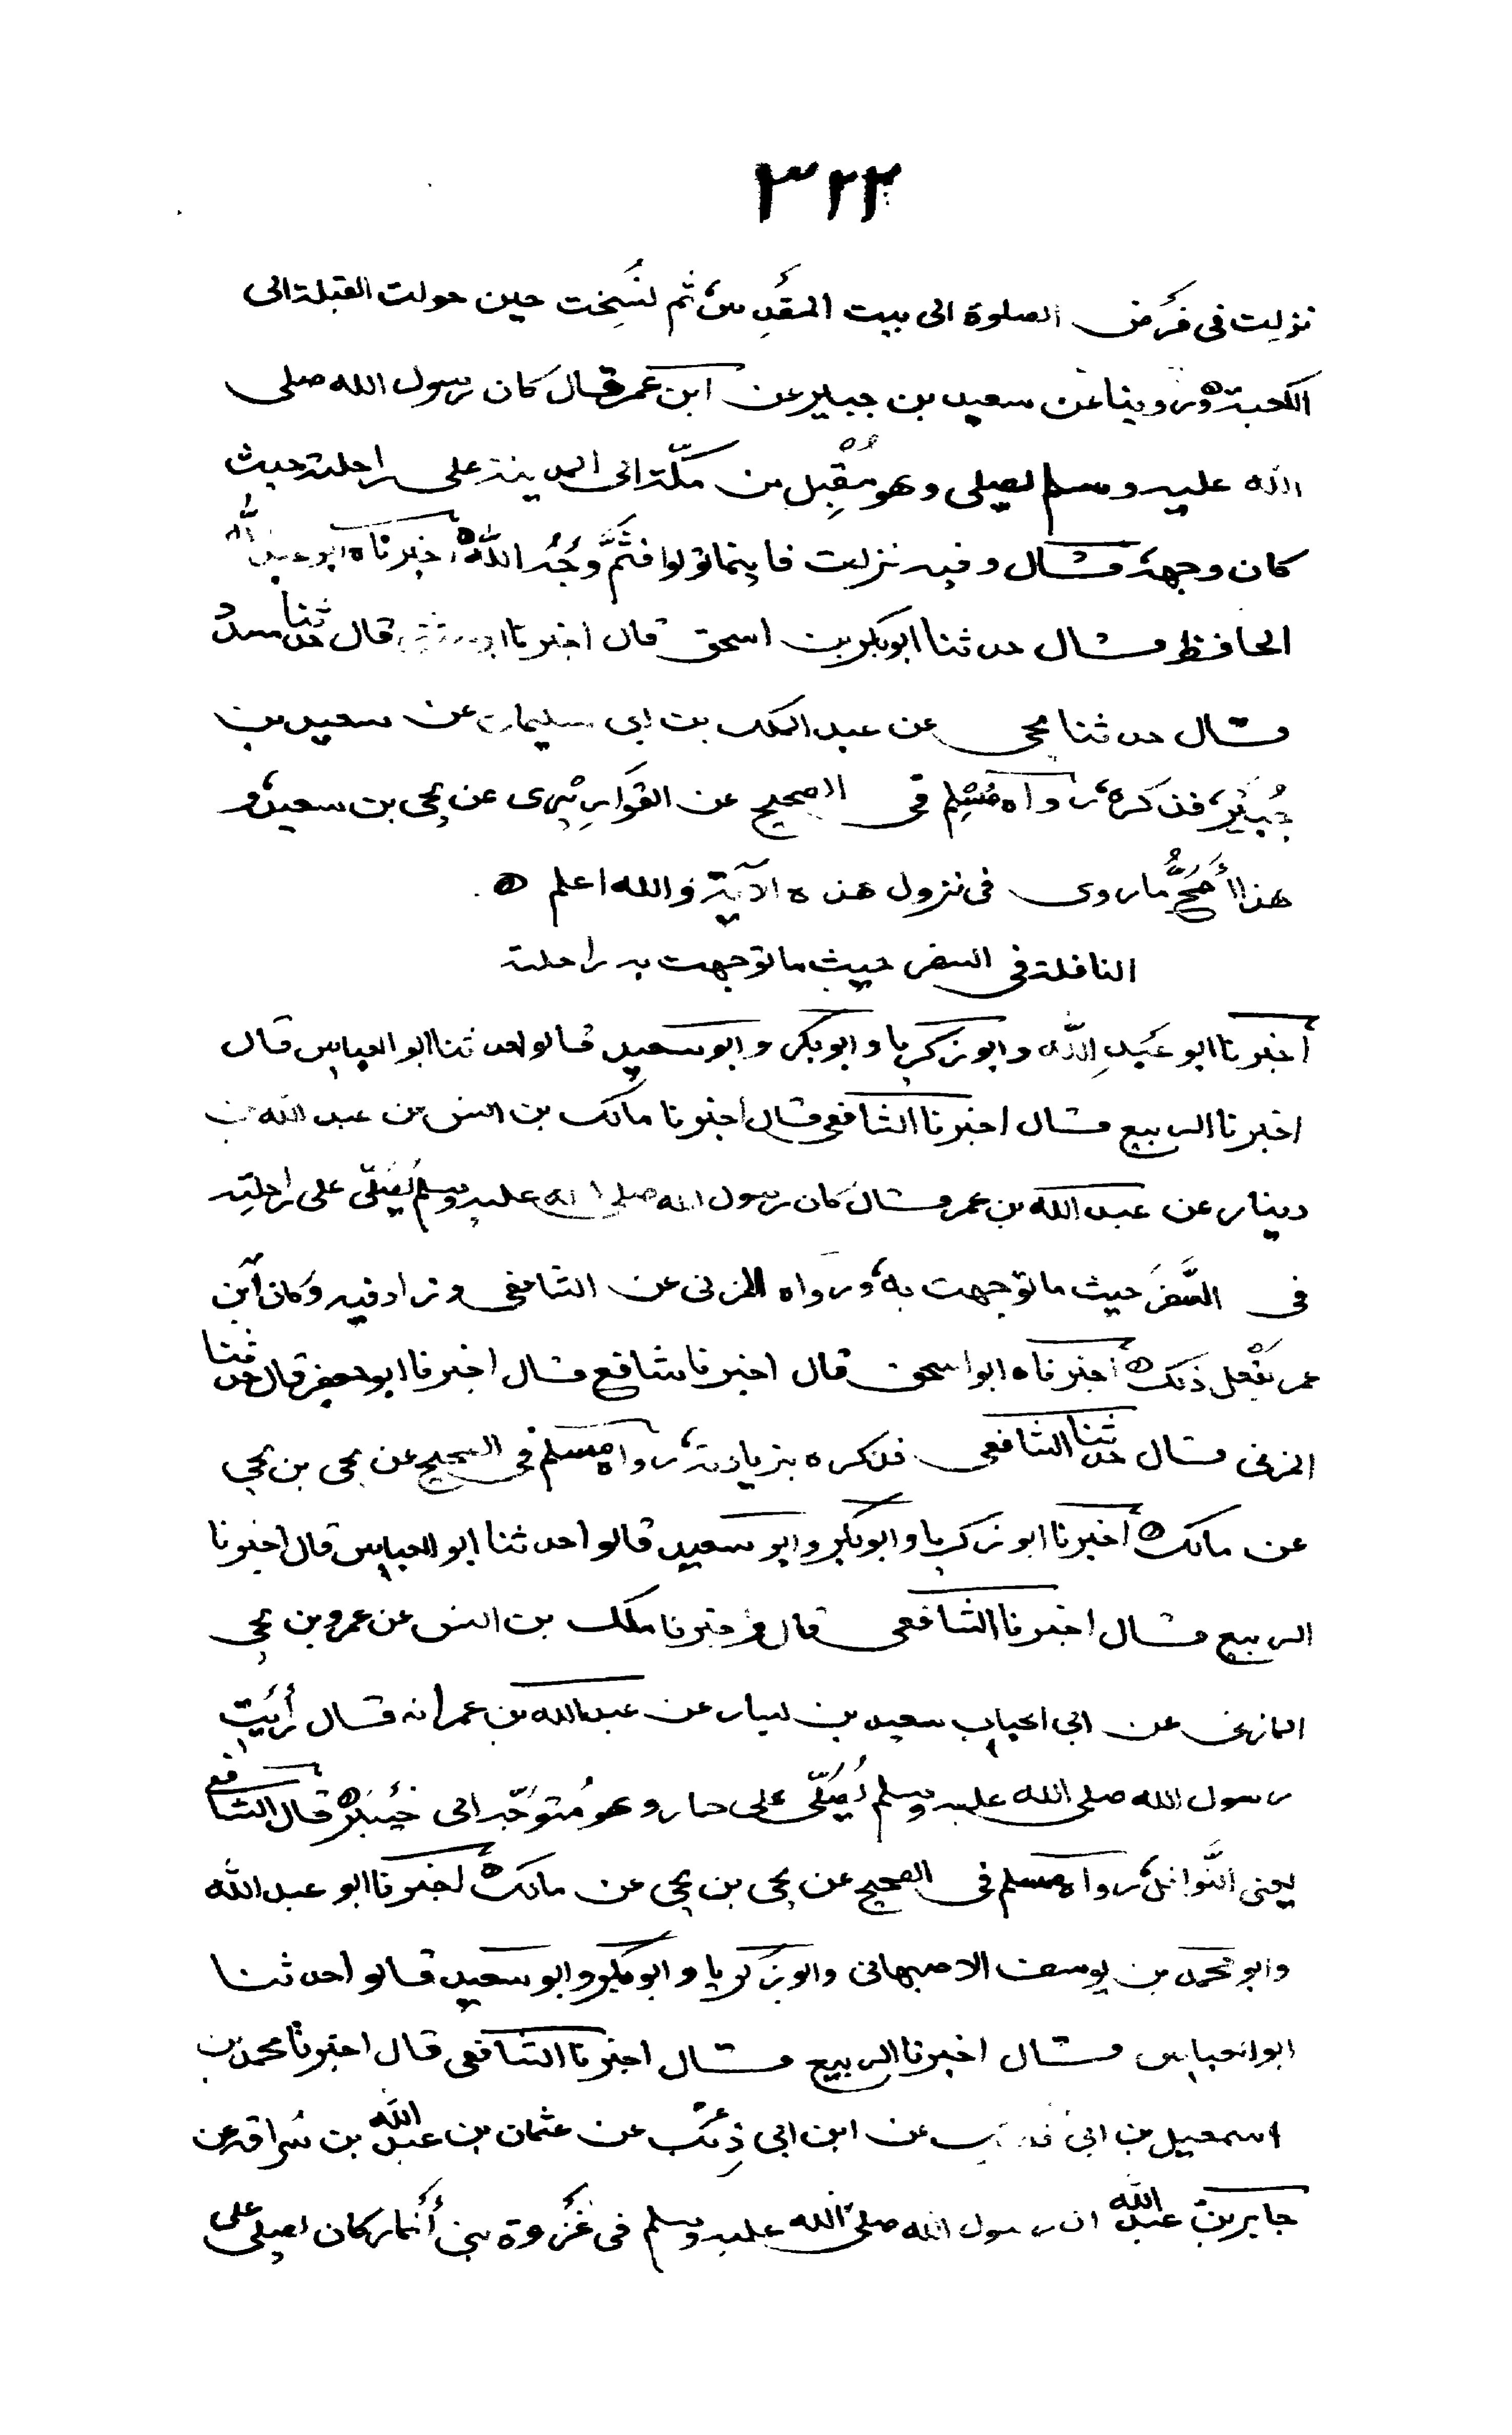 ٣٢٢
نزلت فى فرض الصلوة الى بيت المقدس ثم نسخت حين حولت القبلة الى
الكعبة ه وروينا عن سعيد بن جبير عن ابن عمر قال كان رسول الله صلى
الله عليه وسلم يصلى وهو مُقْبِل من مكّة الى المدينة على راحلته حيث
كان وجهه قال وفيه نزلت فاينما تولوا فثمَّ وَجْهُ الله ه اخبرناه ابو عبد الله
الحافظ قال حدثنا ابو بكر بن اسحق قال اخبرنا ابو المثنى قال حدثنا مسدد
قال حدثنا يحيى عن عبد الملك بن ابى سليمان عن سعيد بن
جُبَيْر فذكره رواه مُسْلِم فى الصحيح عن القَوَارِيْرى عن يحيى بن سعيد و
هذا أَصَحُّ ما روى فى نزول هذه الآية والله اعلم ه
النافلة فى السفر حيث ما توجهت به راحلته
أخبرنا ابو عَبْدِ الله وابو زكريا وابو بكر وابو سعيد قالوا حدثنا ابو العباس قال
اخبرنا الربيع قال اخبرنا الشافعى قال اخبرنا مالك بن انس عن عبد الله بن
دينار عن عبد الله بن عمر قال كان رسول الله صلى الله عليه وسلم يُصَلّى على راحلتِه
فى السَّفَر حيث ما توجهت به ورواه المزنى عن الشافعى وزاد فيه وكان ابن
عمر يَفْعل ذلك ه اخبرناه ابو اسحق قال اخبرنا شافع قال اخبرنا ابو جعفر قال حدثنا
المزنى قال حدثنا الشافعى فذكره بزيادته رواه مسلم فى الصحيح عن يحيى بن يحيى
عن مالك ه اخبرنا ابو زكريا وابو بكر وابو سعيد قالوا حدثنا ابو العباس قال اخبرنا
الربيع قال اخبرنا الشافعى قال اخبرنا ملك بن انس عن عمرو بن يحيى
المازنى عن ابى الحباب سعيد بن يسار عن عبد الله بن عمر انه قال رأيت
رسول الله صلى الله عليه وسلم يُصَلّى على حمار وهو مُتَوَجّه الى خَيْبَر ه قال الشافعى
يعنى النَّوافل رواه مسلم فى الصحيح عن يحيى بن يحيى عن مالك ه اخبرنا ابو عبد الله
وابو محمد بن يوسف الاصبهانى وابو زكريا وابو بكر وابو سعيد قالوا حدثنا
ابو العباس قال اخبرنا الربيع قال اخبرنا الشافعى قال اخبرنا محمد بن
اسمعيل بن ابى عن ابن ابى ذِئب عن عثمان بن عبد الله بن سُراقة عن
جابر بن عبد الله ان رسول الله صلى الله عليه وسلم فى غَزوة بنى أَنمار كان يصلى على